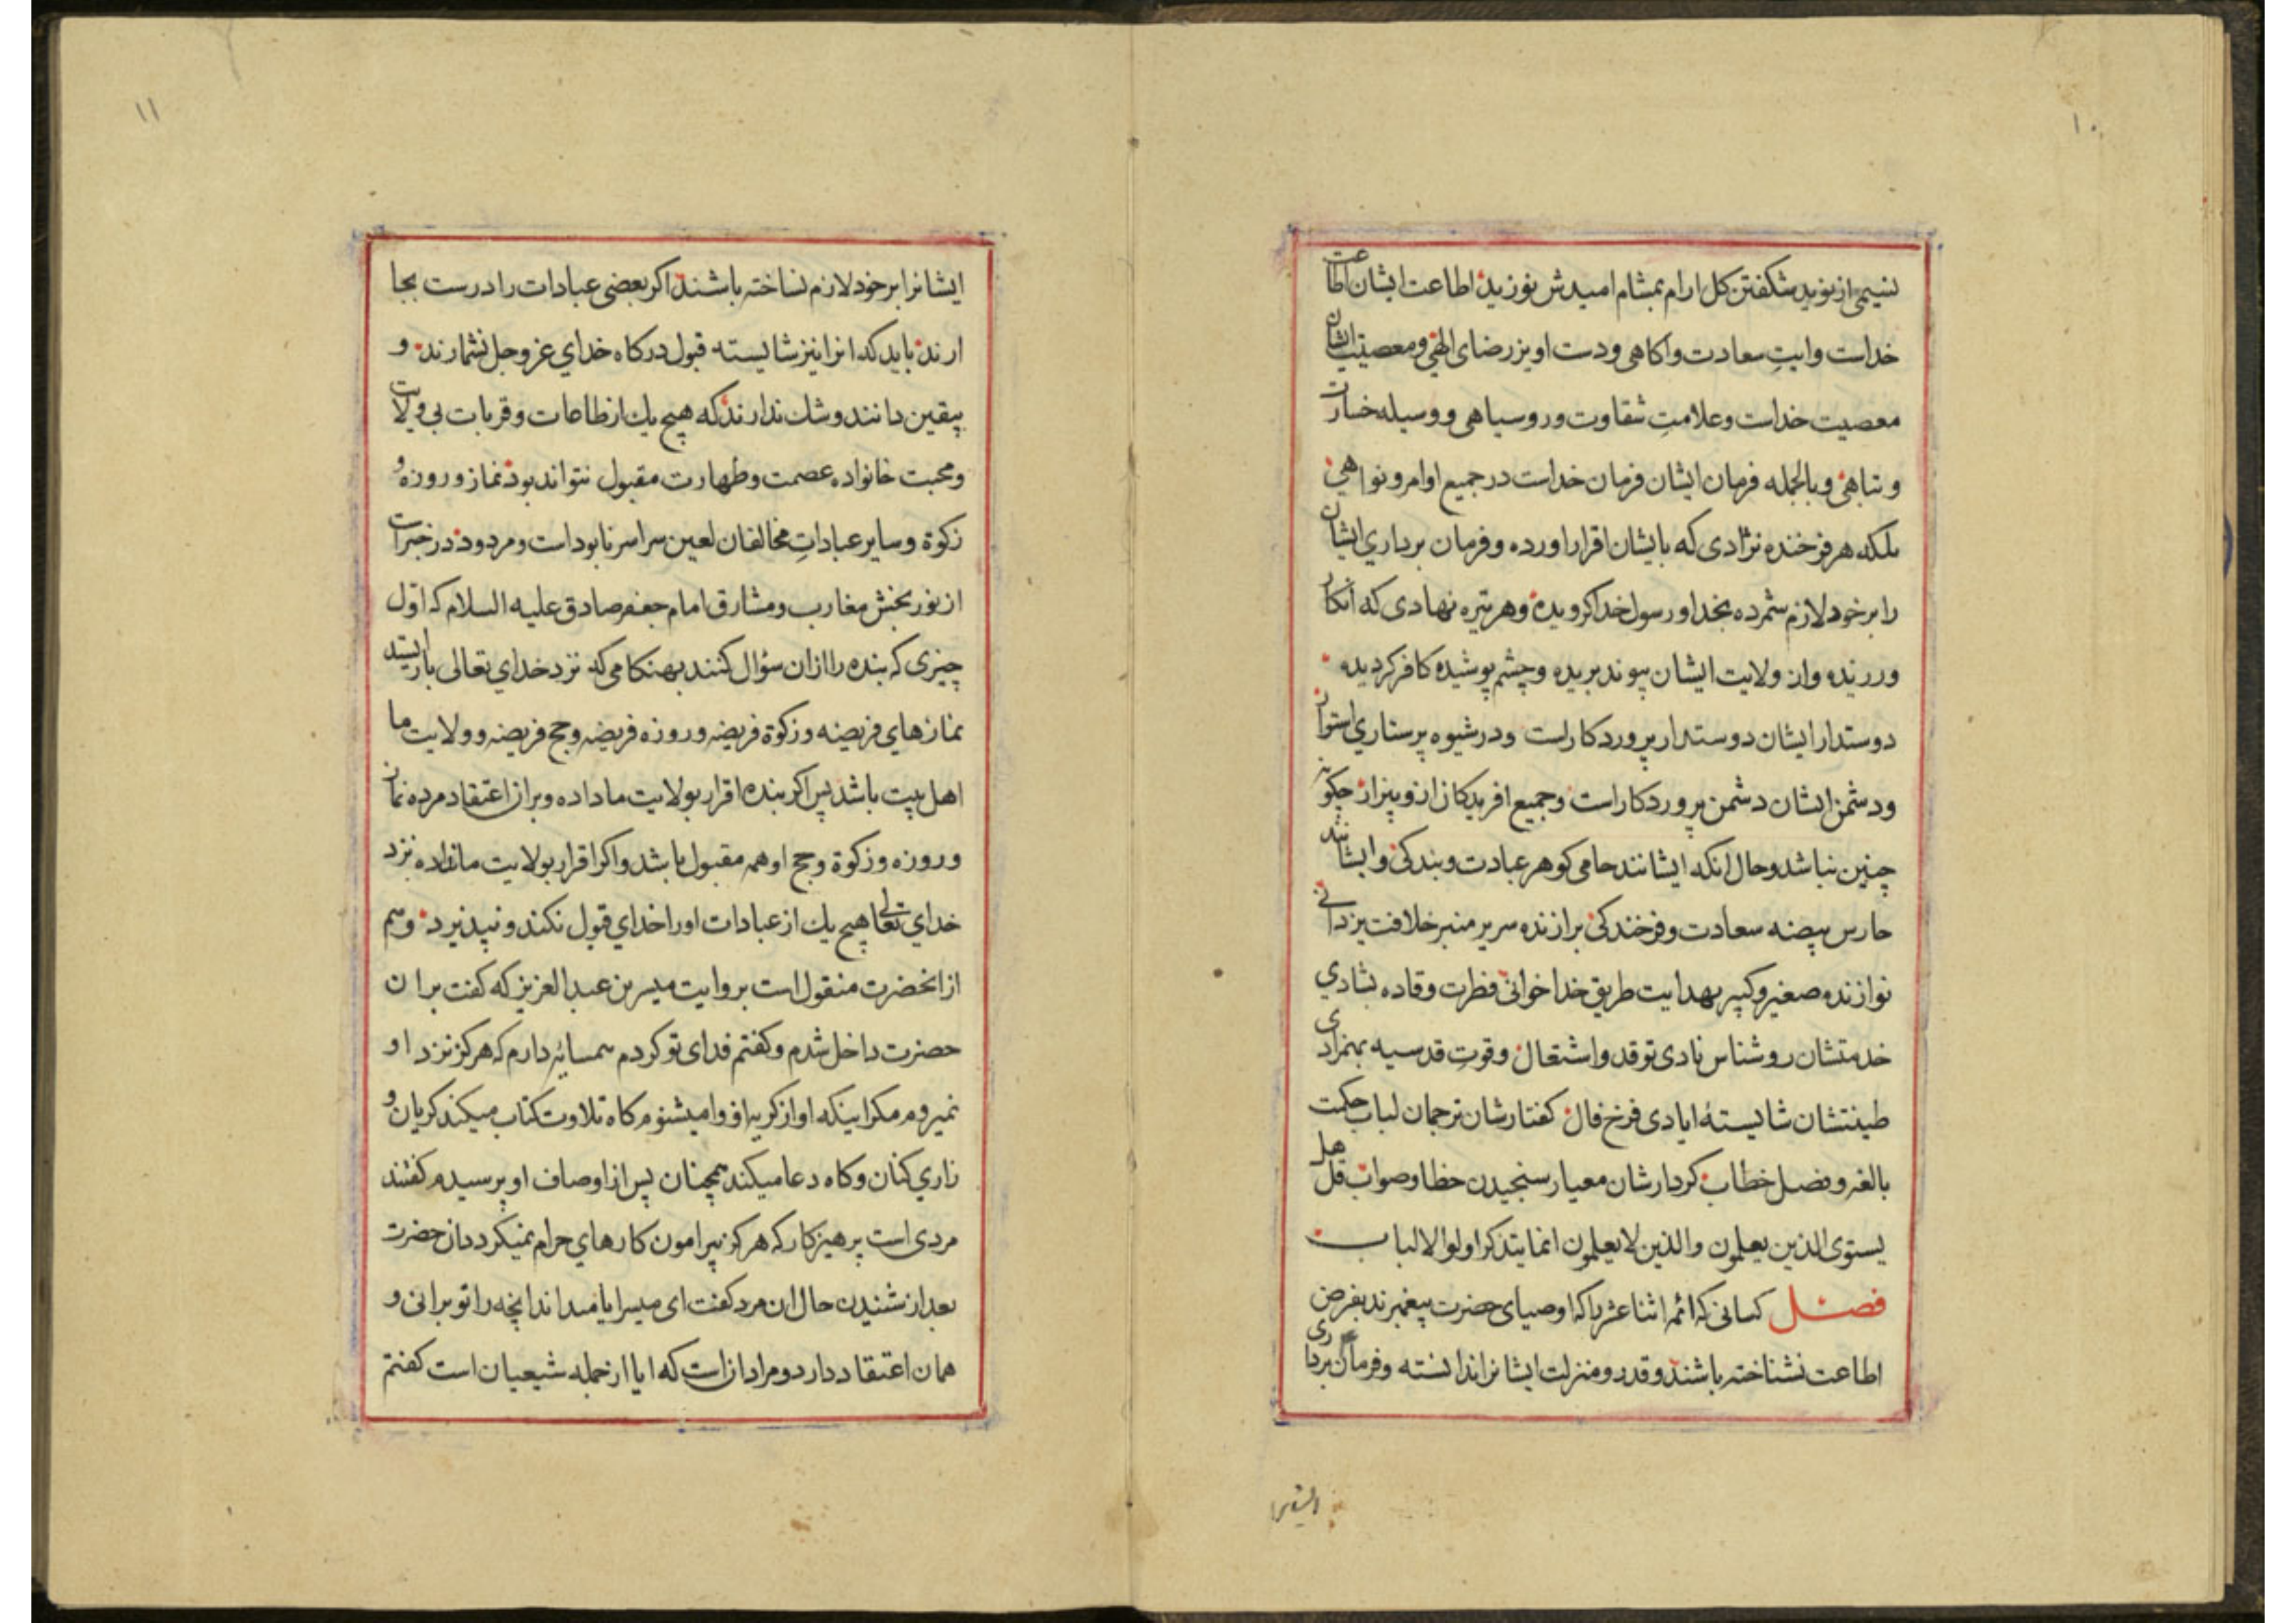 ۱۰
نسیمی از نوید شکفتن کل ارام بمشام امیدش نوزید اطاعت ایشان اطاعت
خداست وایتِ سعادت واکاهی ودست اویز رضای الهی ومعصیت ایشان
معصیت خداست وعلامتِ شقاوت وروسیاهی ووسیله خسارت
وتباهی وبالجمله فرمان ایشان فرمان خداست درجمیع اوامر ونواهی
بلکه هر فرخنده نژادی که بایشان اقرار اورده وفرمان برداری ایشان
را بر خود لازم شمرده بخدا ورسول خدا کرویده وهر تیره نهادی که انکار
ورزیده واز ولایت ایشان پیوند بریده وچشم پوشیده کافر کردیده
دوستدار ایشان دوستدار پروردکار است ودر شیوه پرستاری استوار
ودشمن ایشان دشمن پروردکار است وجمیع افریدکان ازو بیزار چکونه
چنین نباشد وحال انکه ایشانند حامی کوهر عبادت وبندکی وایشانند
حارس بیضه سعادت وفرخندکی برازنده سریر منبر خلافت یزدانی
نوازنده صغیر وکبیر بهدایت طریق خداخوانی فطرت وقاده بشادی
خدمتشان روشناس نادی توقد واشتعال وقوتِ قدسیه بهمزادی
طینتشان شایستهٔ ایادی فرخ فال کفتارشان ترجمان لباب حکمت
بالغه وفصل خطاب کردارشان معیار سنجیدن خطا وصواب قل هل
یستوی الذین یعلمون والذین لایعلمون انما یتذکر اولوا الالباب
فصل کسانی که ائمه اثنا عشر را که اوصیای حضرت پیغمبرند بفرض
اطاعت نشناخته باشند وقدر ومنزلت ایشانرا ندانسته وفرمان برداری
ایشانرا
۱۱
ایشانرا بر خود لازم نساخته باشند اکر بعضی عبادات را درست بجا
ارند باید که انرا نیز شایسته قبول درکاه خدای عز وجل نشمارند و
بیقین دانند وشک ندارند که هیچ یک از طاعات وقربات بی ولایت
ومحبت خانواده عصمت وطهارت مقبول نتواند بود نماز وروزه و
زکوة وسایر عباداتِ مخالفان لعین سراسر نابود است ومردود در خبر است
از نور بخش مغارب ومشارق امام جعفر صادق علیه السلام که اوّل
چیزی که بنده را ازان سؤال کنند بهنکامی که نزد خدای تعالی باز ایستد
نمازهای فریضه وزکوة فریضه وروزه فریضه وحج فریضه وولایت ما
اهل بیت باشد پس اکر بنده اقرار بولایت ما داده وبران اعتقاد مرده نماز
وروزه وزکوة وحج او همه مقبول باشد واکر اقرار بولایت ما نداده نزد
خدای تعالی هیچ یک از عبادات اورا خدای قبول نکند ونپذیرد وهم
از انحضرت منقول است بروایت میسر بن عبد العزیز که کفت بر ان
حضرت داخل شدم وکفتم فدای تو کردم همسایهٔ دارم که هرکز نزد او
نمیروم مکر اینکه اواز کریه او را میشنوم کاه تلاوت کتاب میکند کریان و
زاری کنان وکاه دعا میکند همچنان پس از اوصاف او پرسیدم کفتند
مردی است پرهیزکار که هرکز پیرامون کارهای حرام نمیکردد ان حضرت
بعد از شنیدن حال ان مرد کفت ای میسر ایا میداند انچه را تو برانی و
همان اعتقاد دارد ومراد ان است که ایا از جمله شیعیان است کفتم